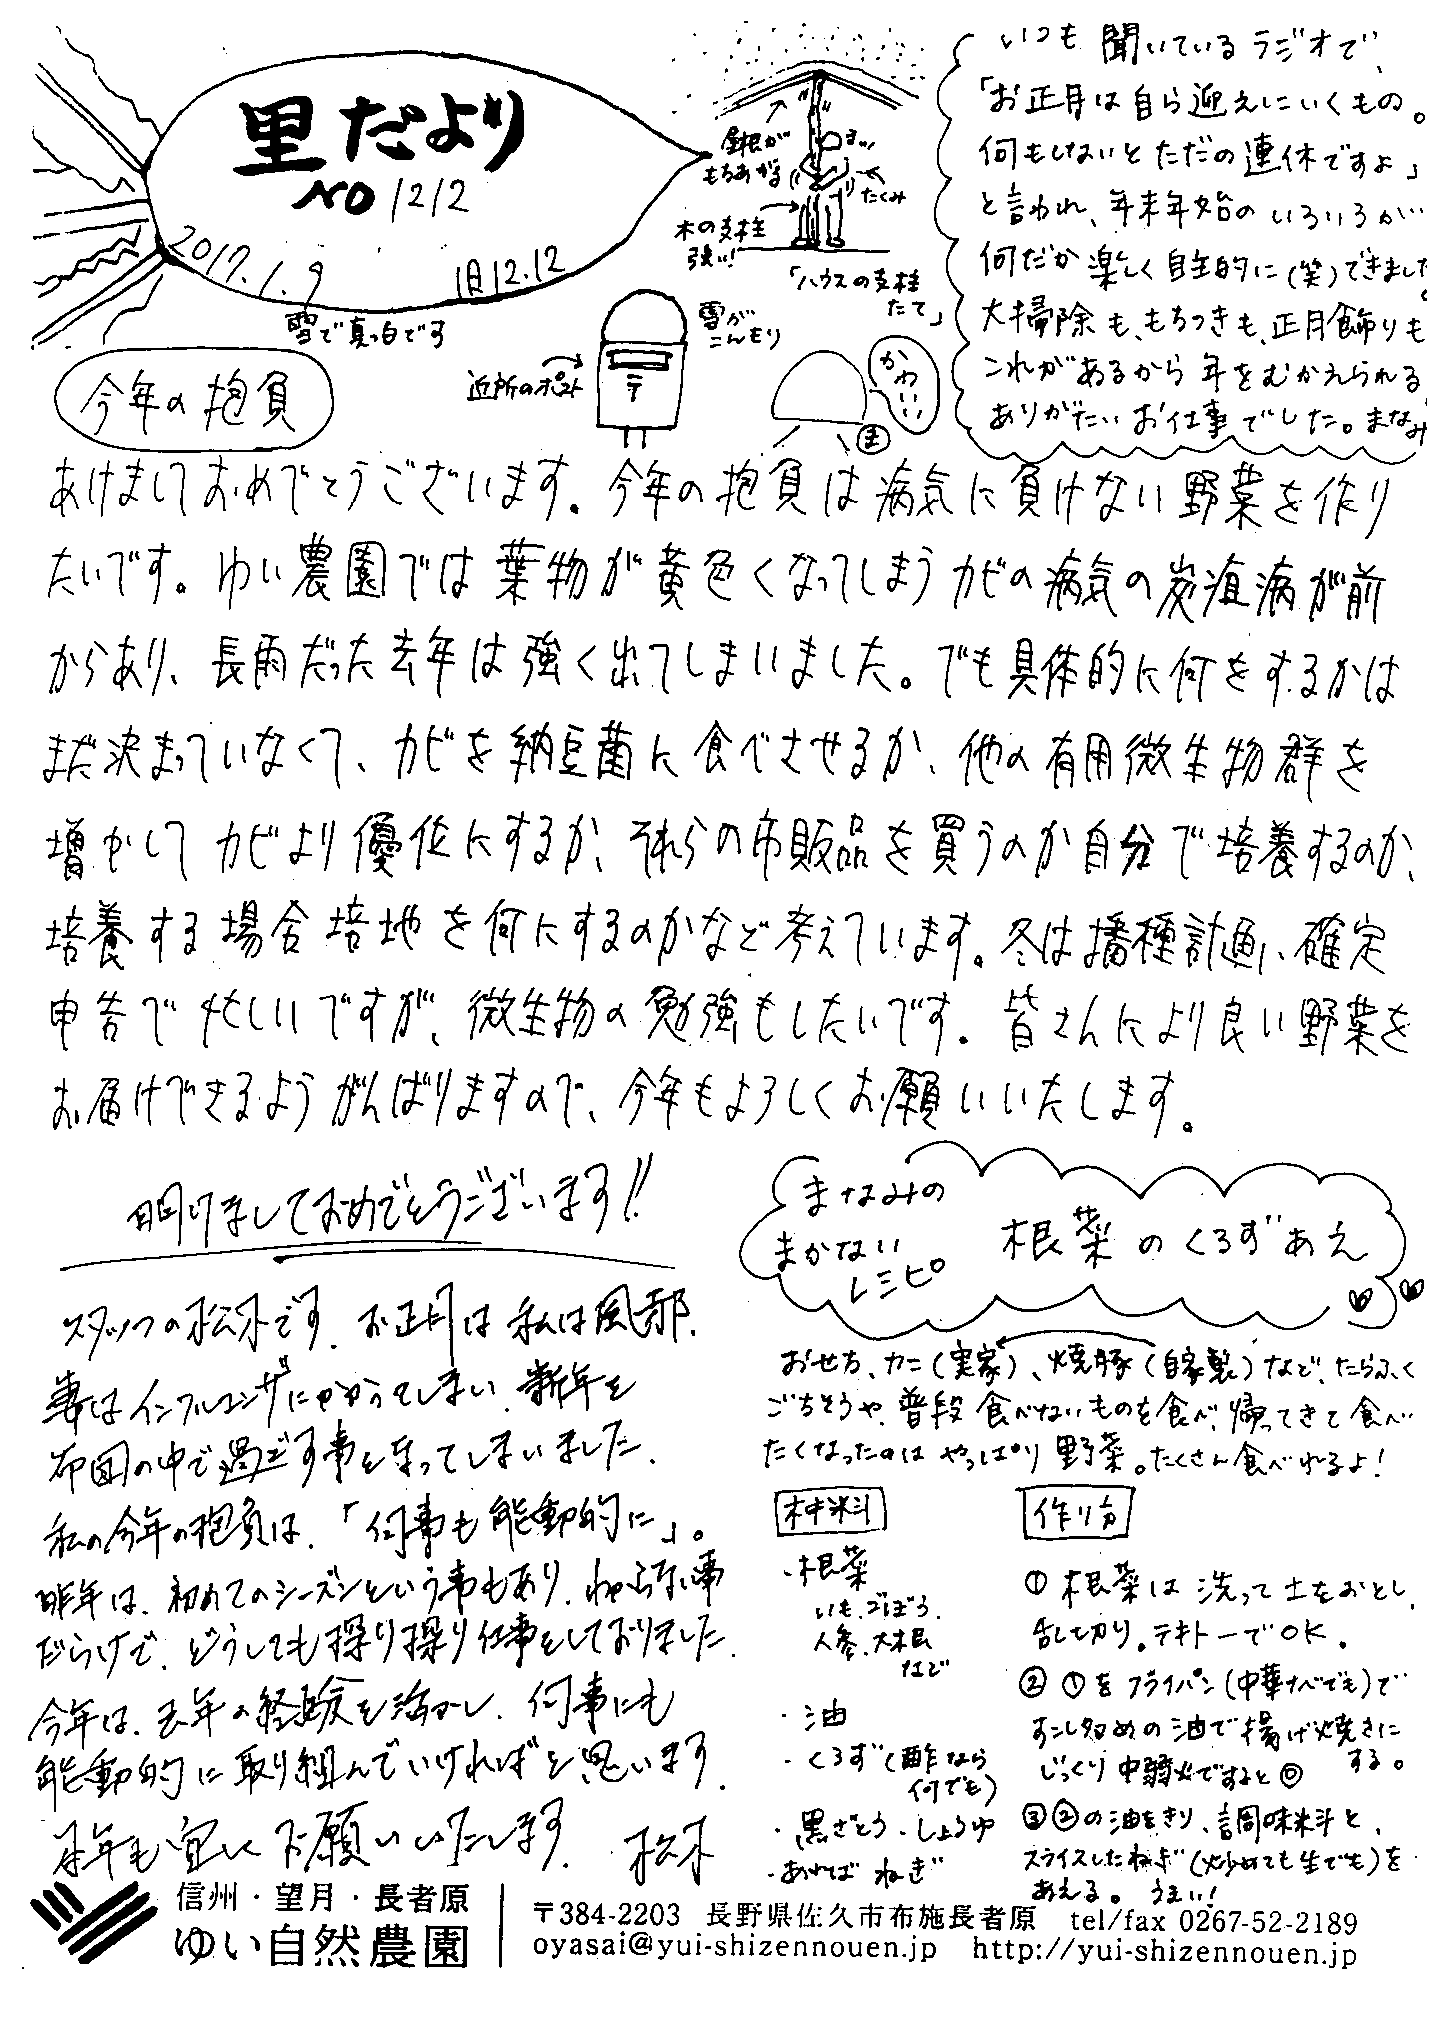 里だより
NO 1212
2017.1.9
旧12.12
雪で真っ白です
屋根が
もちあがる
たくみ
木の支柱
強い!
「ハウスの支柱
たて」
近所のポスト
〒
雪が
こんもり
かわいい
ま
いつも 聞いているラジオで、
「お正月は自ら迎えにいくもの。
何もしないとただの連休ですよ」
と言われ、年末年始のいろいろが
何だか楽しく自主的に(笑)できました。
大掃除も、もちつきも、正月飾りも
これがあるから年をむかえられる、
ありがたいお仕事でした。まなみ
今年の抱負
あけましておめでとうございます。今年の抱負は病気に負けない野菜を作り
たいです。ゆい農園では葉物が黄色くなってしまうカビの病気の炭疽病が前
からあり、長雨だった去年は強く出てしまいました。でも具体的に何をするかは
まだ決まっていなくて、カビを納豆菌に食べさせるか、他の有用微生物群を
増やしてカビより優位にするか、それらの市販品を買うのか自分で培養するのか、
培養する場合培地を何にするのかなど考えています。冬は播種計画、確定
申告で忙しいですが、微生物の勉強もしたいです。皆さんにより良い野菜を
お届けできるようがんばりますので、今年もよろしくお願いいたします。
明けましておめでとうございます!!
スタッフの松木です。お正月は私は風邪、
妻はインフルエンザにかかってしまい、新年を
布団の中で過ごす事となってしまいました。
私の今年の抱負は、「何事も能動的に」。
昨年は、初めてのシーズンという事もあり、わからない事
だらけで、どうしても探り探り仕事をしておりました。
今年は、去年の経験を活かし、何事にも
能動的に取り組んでいければと思います。
本年も宜しくお願いいたします。 松木
まなみの
まかない
レシピ
根菜のくろずあえ
おせち、カニ(実家)、焼豚(自家製)など、たらふく
ごちそうや、普段食べないものを食べ、帰ってきて食べ
たくなったのはやっぱり野菜。たくさん食べれるよ!
材料
・根菜
いも、ごぼう、
人参、大根
など
・油
・くろず(酢なら
何でも)
・黒ざとう・しょうゆ
・あればねぎ
作り方
① 根菜は洗って土をおとし、
乱切り。テキトーでOK。
② ①をフライパン(中華ナベでも)で
すこし多めの油で揚げ焼きに
する。
じっくり中弱火ですると◎
③②の油をきり、調味料と、
スライスしたねぎ(炒めても生でも)を
あえる。うまい!
信州・望月・長者原
ゆい自然農園
〒384-2203 長野県佐久市布施長者原 tel/fax 0267-52-2189
oyasai@yui-shizennouen.jp http://yui-shizennouen.jp